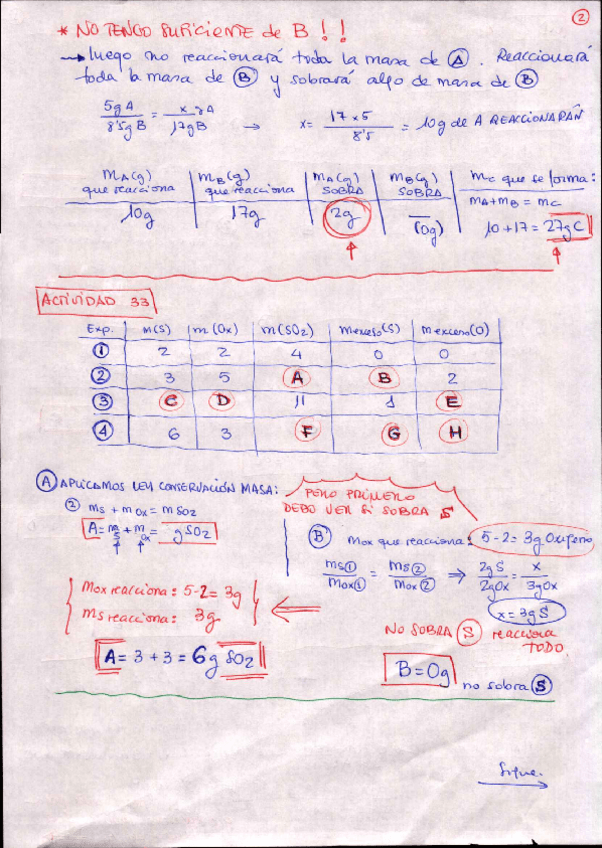 2
* NO TENGO SUFICIENTE de B !!
→ luego no reaccionará toda la masa de A. Reaccionará
toda la masa de B y sobrará algo de masa de B
5g A / 8'5g B = x g A / 17g B → x = 17 x 5 / 8'5 = 10g de A REACCIONARÁN
mA(g) que reacciona | mB(g) que reacciona | mA(g) SOBRA | mB(g) SOBRA | mC que se forma:
mA+mB = mC
10g | 17g | 2g | (0g) | 10+17 = 27g C
ACTIVIDAD 33
Exp. | m(S) | m(Ox) | m(SO2) | m exceso(S) | m exceso(O)
1 | 2 | 2 | 4 | 0 | 0
2 | 3 | 5 | A | B | 2
3 | C | D | 11 | 1 | E
4 | 6 | 3 | F | G | H
A APLICAMOS LEY CONSERVACIÓN MASA:
2) mS + mOx = mSO2
A = mS + mOx = g SO2
PERO PRIMERO
DEBO VER SI SOBRA S
B mox que reacciona: 5-2 = 3g Oxígeno
mS1 / mOx1 = mS2 / mOx2 ⇒ 2gS / 2gOx = x / 3gOx
x = 3g S
Mox reacciona: 5-2 = 3g
mS reacciona: 3g
A = 3 + 3 = 6g SO2
NO SOBRA S reacciona
TODO.
B = 0g no sobra S
Sigue.